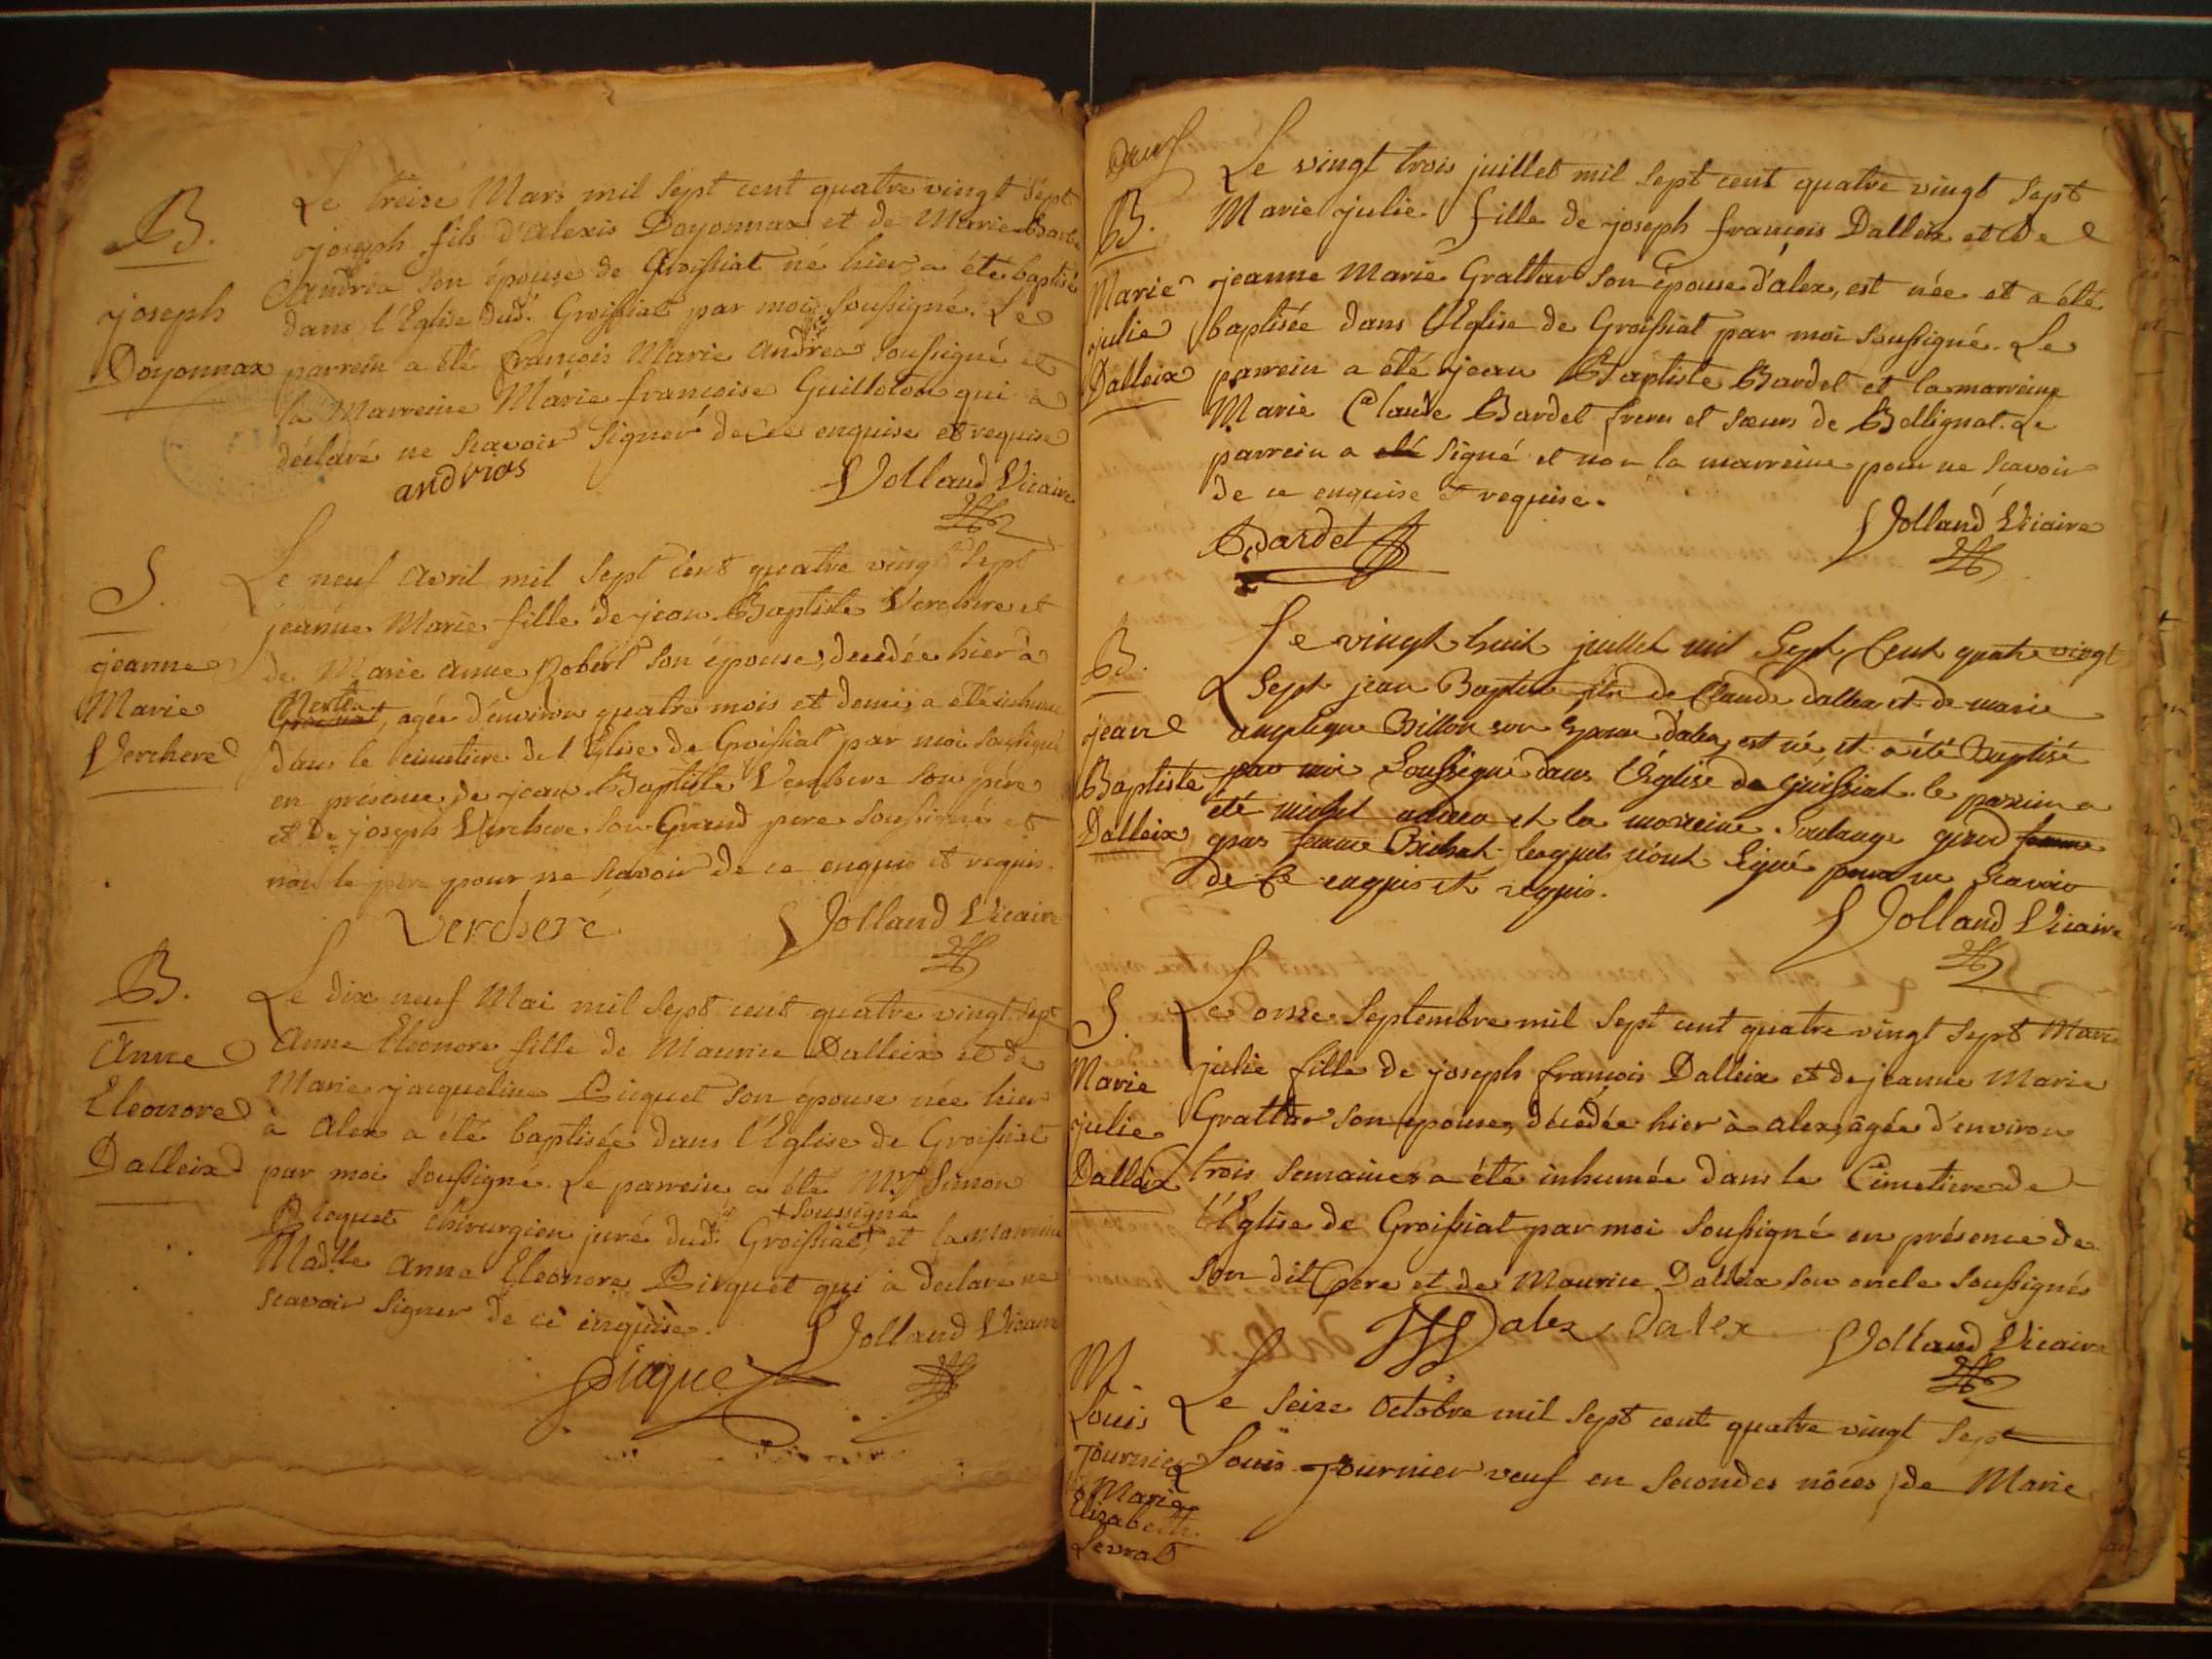 B.
joseph
Doyonnax
Le treize Mars mil Sept cent quatre vingt Sept
joseph fils d'alexis Doyonnax et de Marie Barbe
andréa son épouse de Groissiat né hier a été baptisé
dans l'Eglise dud. Groissiat par moi soussigné. Le
parrein a été françois Marie andréa soussigné et
la Marreine Marie francoise Guilloton qui a
déclaré ne scavoir signer de ce enquise et requise
andrios
Jolland Vicaire
S.
jeanne
Marie
Verchere
Le neuf avril mil Sept Cent quatre vingt Sept
jeanne Marie fille de jean Baptiste Verchere et
de Marie anne Robert son épouse, decedée hier à
agée d'environ quatre mois et demi, a été inhumée
dans le cimetiere de l'Eglise de Groissiat par moi soussigné
en présence de jean Baptiste Verchere son père
et De joseph Verchere son Grand pere soussigné et
non le père pour ne scavoir de ce enquis et requis.
Verchere
Jolland Vicaire
B.
Anne
Eleonore
Dalleix
Le dix neuf Mai mil Sept cent quatre vingt Sept
Anne Eleonore fille de Maurice Dalleix et de
Marie jacqueline Picquet son epouse née hier
à alex a été baptisée dans l'Eglise de Groissiat
par moi soussigné. Le parrein a été Mr. Simon
+ soussigné
Picquet chirurgien juré dud. Groissiat + et la marreine
Madlle Anne Eleonore Picquet qui a declaré ne
scavoir signer de ce enquise.
Jolland Vicaire
picque
B.
Marie
julie
Dalleix
Le vingt trois juillet mil Sept cent quatre vingt Sept
Marie julie fille de joseph françois Dalleix et De
jeanne Marie Grattar son épouse d'alex, est née et a été
baptisée dans l'Eglise de Groissiat par moi soussigné. Le
parrein a été jean Baptiste Bardet et la marreine
Marie Claude Bardet frere et sœurs de Bellignat. Le
parrein a été signé et non la marreine pour ne scavoir
de ce enquise et requise.
Bardet
Jolland Vicaire
B.
jean
Baptiste
Dalleix
Le vingt huit juillet mil Sept Cent quatre vingt
Sept jean Baptiste fils de Claude dallex et de marie
angelique Billon son Epouse d'alex, est né et a été Baptisé
par moi Soussigné dans l'Eglise de Groissiat. le parrin a
été michel andréa et la marreine Soulange girod femme
gros femme Bichat lesquels n'ont signé pour ne scavoir
de ce enquis et requis.
Jolland Vicaire
S.
Marie
julie
Dalleix
Le onze Septembre mil Sept cent quatre vingt Sept Marie
julie fille de joseph françois Dalleix et de jeanne Marie
Grattar son epouse, décédée hier à alex, âgée d'environ
trois semaines a été inhumée dans le Cimetiere de
l'Eglise de Groissiat par moi soussigné en présence de
son dit pere et de Maurice Dalleix son oncle soussignés
Dalex Dalex
Jolland Vicaire
M.
Louis
journier
Marie
Elizabeth
Levrat
Le Seize Octobre mil Sept cent quatre vingt Sept
Louis journier veuf en Secondes nôces, de Marie